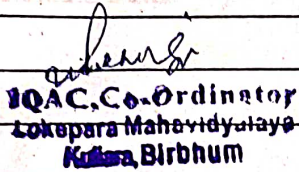 IQAC, Co-Ordinator
Lokepara Mahavidyalaya
Birbhum